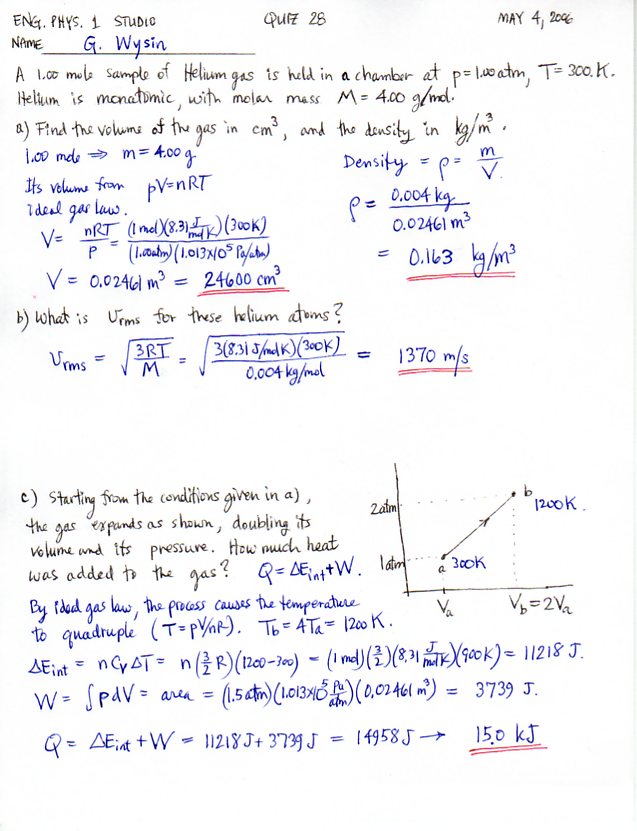 ENG. PHYS. 1 STUDIO QUIZ 28 MAY 4, 2006
NAME G. Wysin
A 1.00 mole sample of Helium gas is held in a chamber at p=1.00 atm, T=300. K.
Helium is monatomic, with molar mass M = 4.00 g/mol.
a) Find the volume of the gas in cm³, and the density in kg/m³.
1.00 mole ⇒ m = 4.00 g
Its volume from pV=nRT
ideal gas law.
V = nRT/P = (1 mol)(8.31 J/mol K)(300K) / (1.00atm)(1.013×10⁵ Pa/atm)
V = 0.02461 m³ = 24600 cm³
Density = ρ = m/V
ρ = 0.004 kg / 0.02461 m³
= 0.163 kg/m³
b) What is Vrms for these helium atoms?
Vrms = √(3RT/M) = √(3(8.31 J/mol K)(300K) / 0.004 kg/mol) = 1370 m/s
c) Starting from the conditions given in a),
the gas expands as shown, doubling its
volume and its pressure. How much heat
was added to the gas? Q = ΔEint + W.
2atm
1atm
b 1200K.
a 300K
Va Vb = 2Va
By ideal gas law, the process causes the temperature
to quadruple (T = pV/nR). Tb = 4Ta = 1200 K.
ΔEint = n Cv ΔT = n(3/2 R)(1200-300) = (1 mol)(3/2)(8.31 J/mol K)(900K) = 11218 J.
W = ∫pdV = area = (1.5 atm)(1.013×10⁵ Pa/atm)(0.02461 m³) = 3739 J.
Q = ΔEint + W = 11218 J + 3739 J = 14958 J → 15.0 kJ